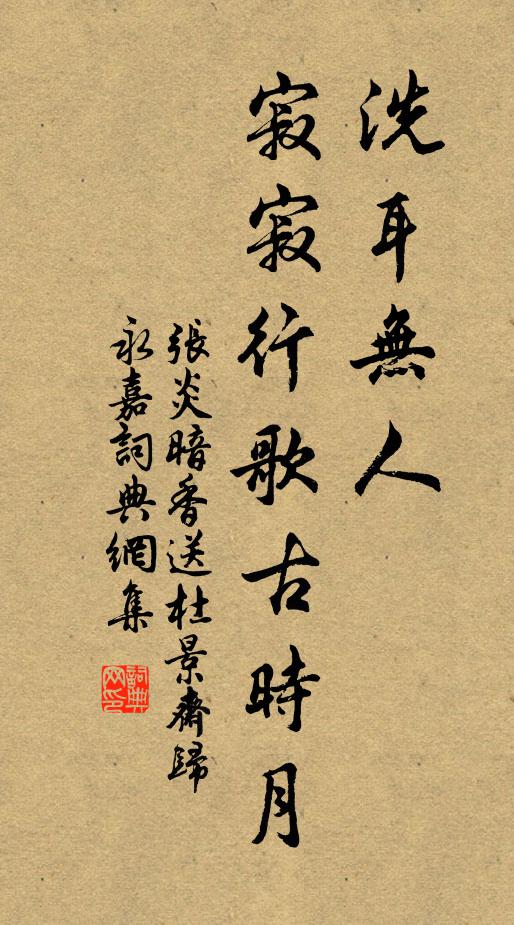 洗耳無人
寂寂行歌古時月
張炎暗香送杜景齋歸
永嘉詞典網集
詞典网印